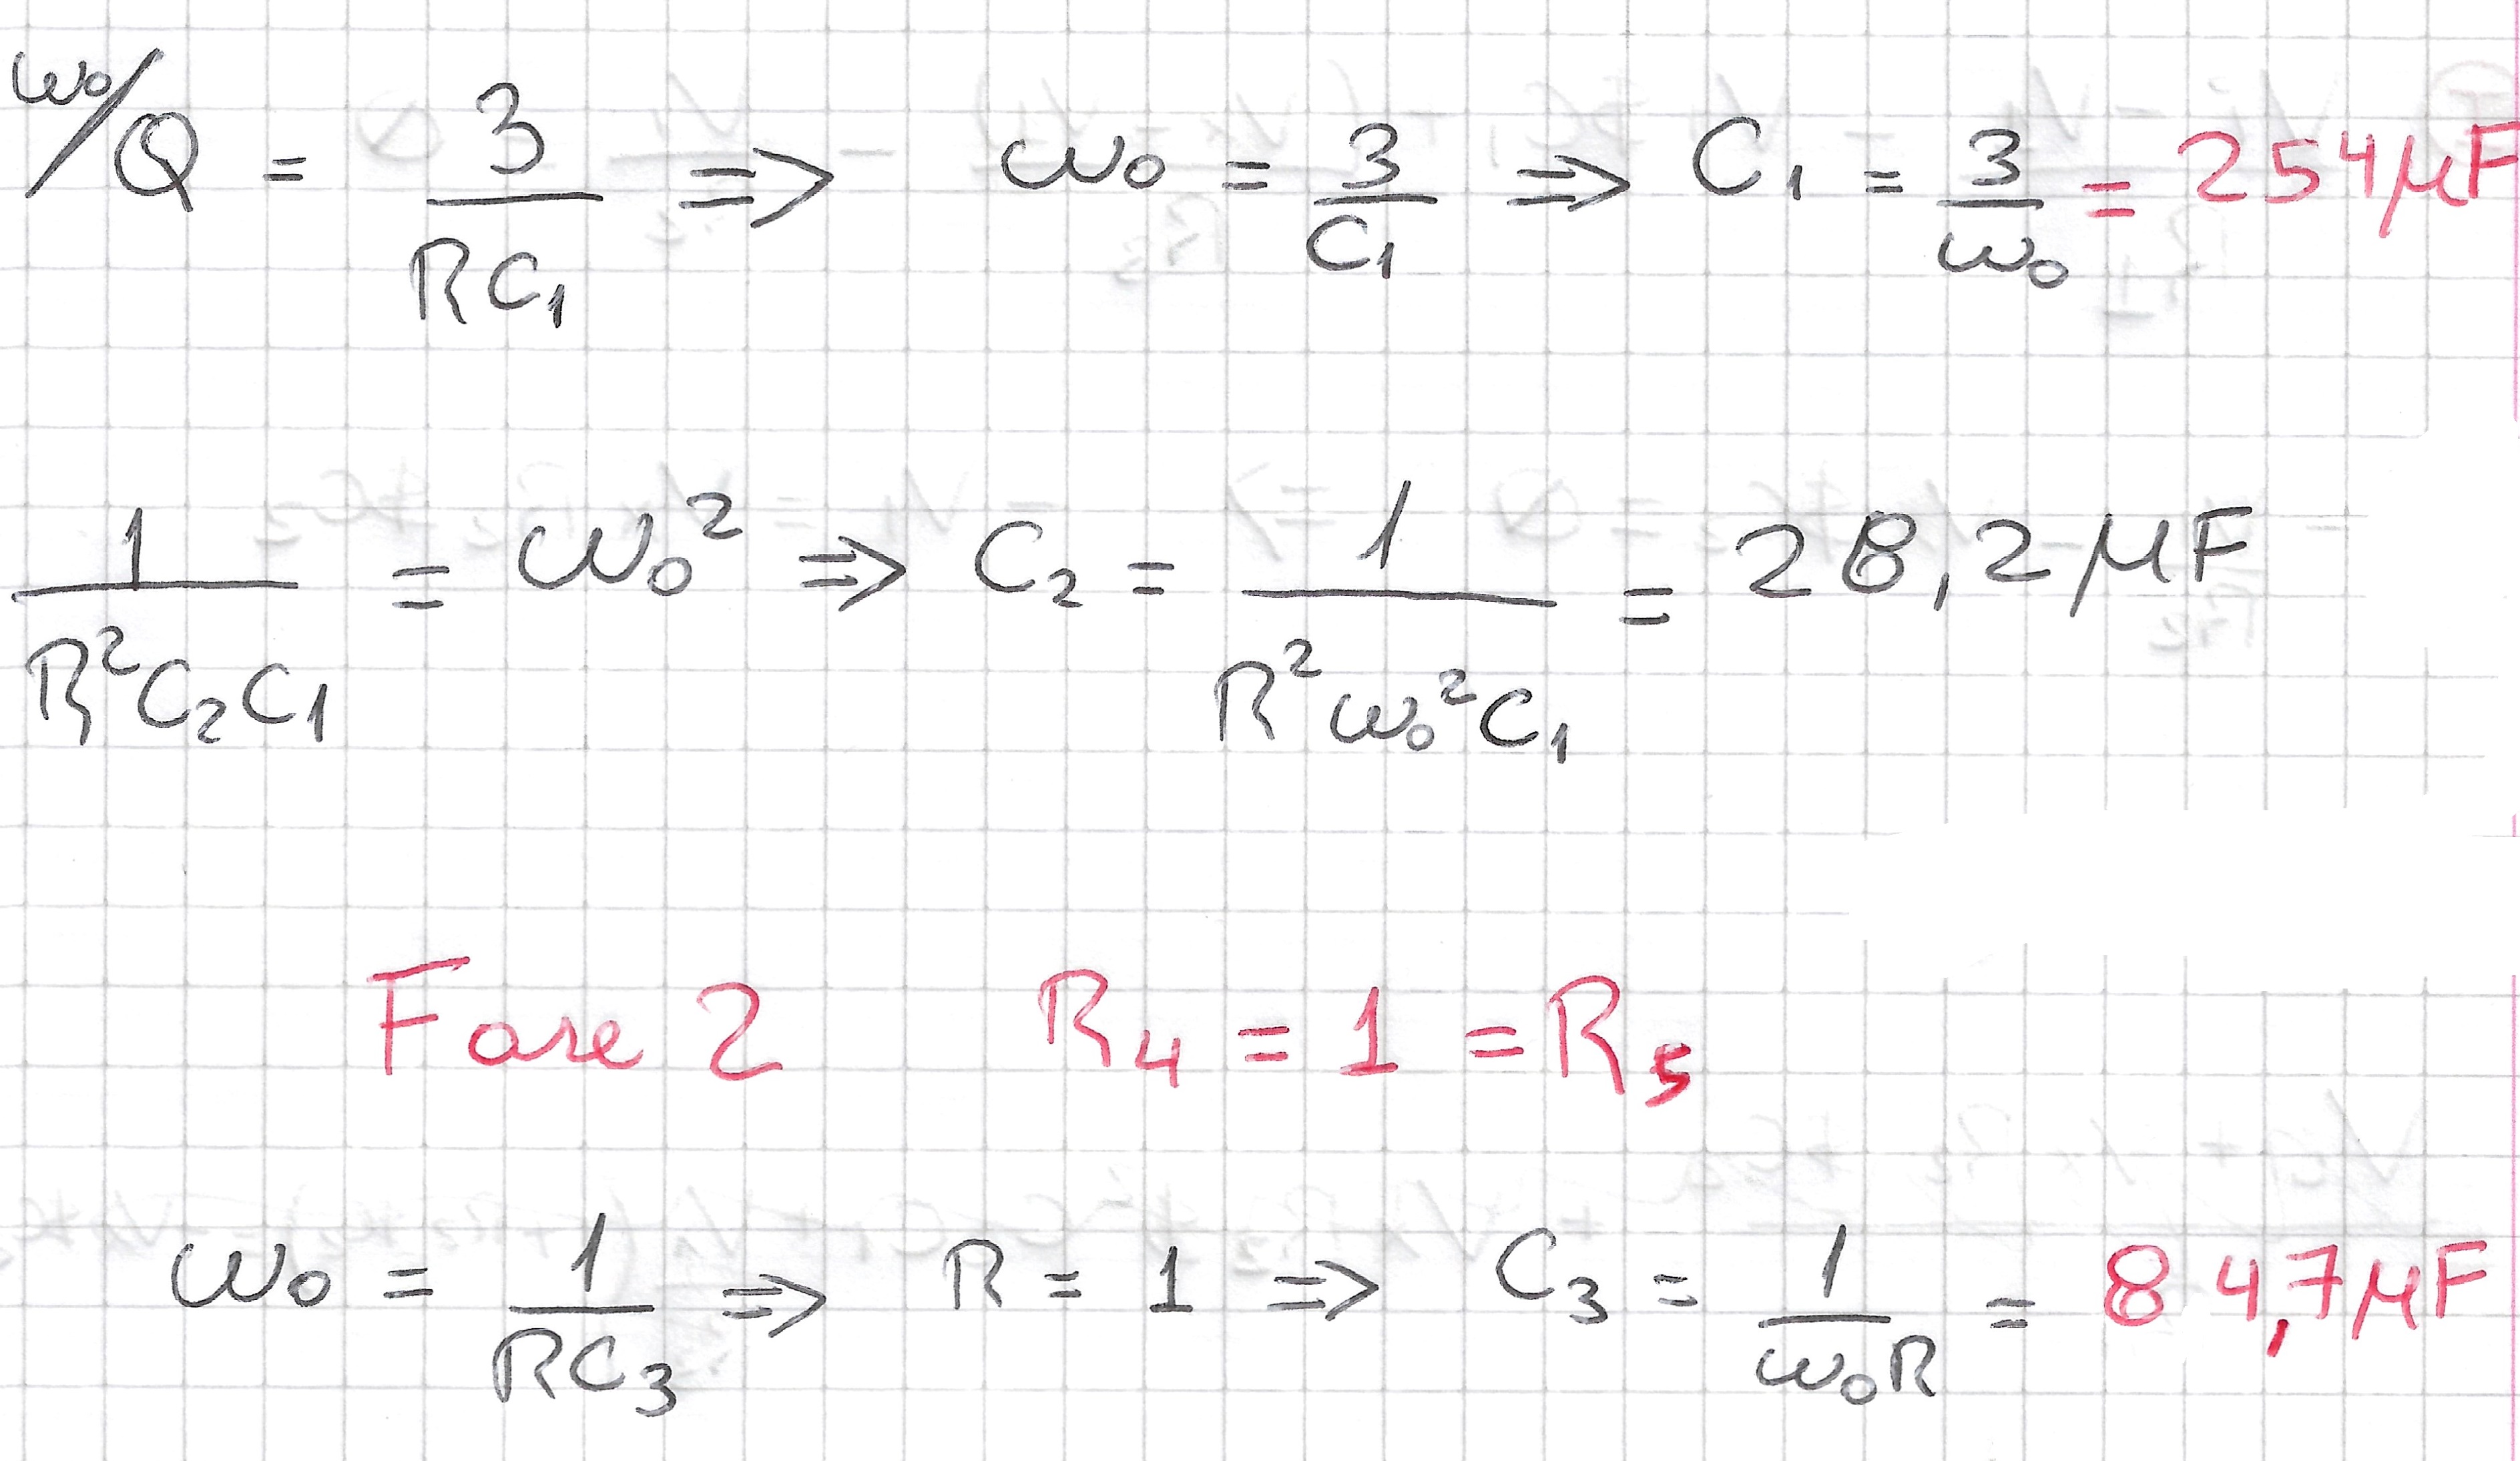 ω₀/Q = 3/RC₁ => ω₀ = 3/C₁ => C₁ = 3/ω₀ = 254μF
1/R²C₂C₁ = ω₀² => C₂ = 1/R²ω₀²C₁ = 28,2μF
Fase 2 R₄ = 1 = R₅
ω₀ = 1/RC₃ => R = 1 => C₃ = 1/ω₀R = 84,7μF